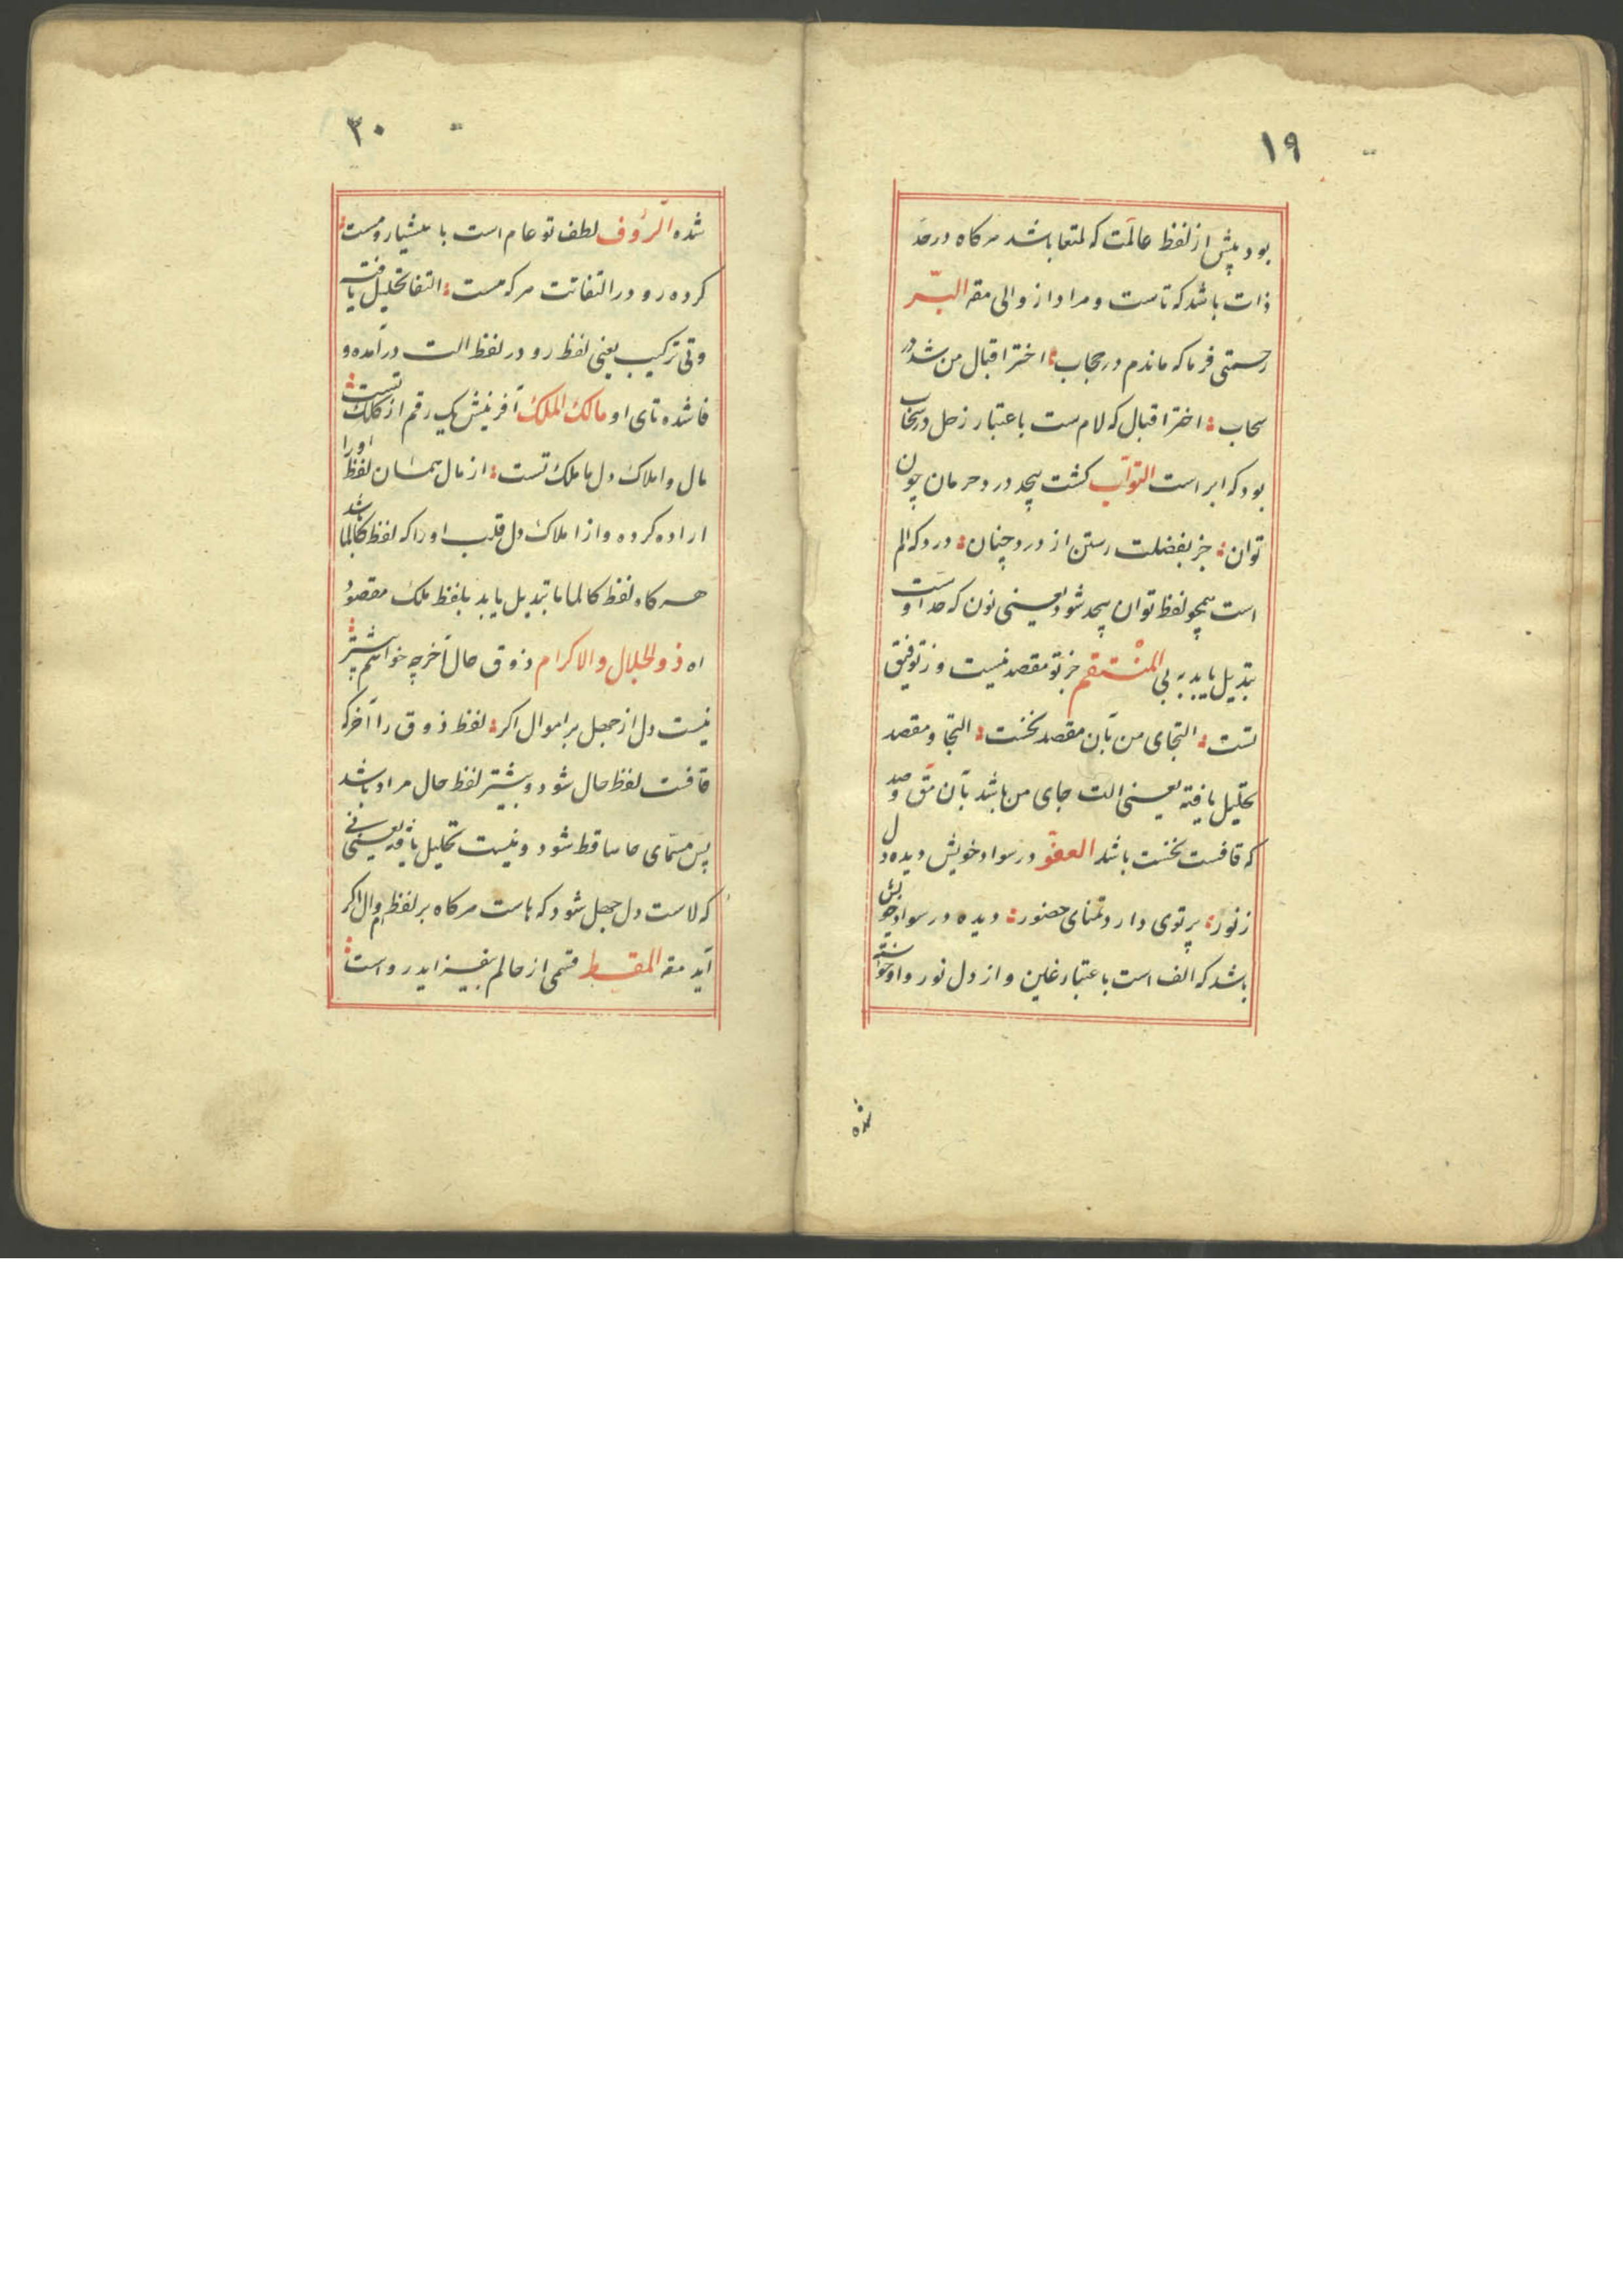 ١٩
بود پیش از لفظ عالمت که لمتعا باشد هرکاه در حد
ذات باشد که تاست و مراد از والی مقه البرّ
رحمتی فرما که ماندم در حجاب؛ اختر اقبال من شد در
سحاب؛ اختر اقبال که لام ست باعتبار زحل در سحاب
بود که ابر است التوّاب کشت پیچد درد حرمان چون
توان؛ جز بفضلت رستن از درد چنان؛ درد که الم
است همچو لفظ توان پیچد شود یعنی نون که حد اوست
تبدیل یابد به بی المنتقم جز تو مقصد نیست وز توفیق
تست؛ التجای من بآن مقصد نخست؛ التجا و مقصد
تحلیل یافته یعنی الت جای من باشد بآن مق وصد
که قافست نخست باشد العفوّ در سواد خویش دیده دل
ز نور؛ پرتوی دارد تمنای حضور؛ دیده در سواد خویش
باشد که الف است باعتبار غلین و از دل نور واو خواسته
شده
٣٠
شده الرؤف لطف تو عام است با هشیار و مست؛
کرده رو در التفاتت هرکه هست؛ التفا تحلیل یافته
وتی ترکیب یعنی لفظ رو در لفظ الت درآمده و
فا شده تای او مالک الملک آفرینش یک رقم از کلک تست؛
مال و املاک دل ما ملک تست؛ از مال همسان لفظ او را
اراده کرده و از املاک دل قلب او را که لفظ کالما باشد
هرکاه لفظ کالما ما تبدیل یابد بلفظ ملک مقصود
اه ذولجلال والاکرام ذوق حال آخر چه خواهم پیشتر؛
نیست دل از جهل بر اموال اکر؛ لفظ ذوق را آخر که
قافت لفظ حال شود و پیشتر لفظ حال مراد باشد
پس مسمّای حا ساقط شود و نیست تحلیل یافته یعنی نی
که لاست دل جهل شود که هاست هرکاه بر لفظ وال اکر
آید مقه المقسط قسمی از حالم بیفزاید رواست؛